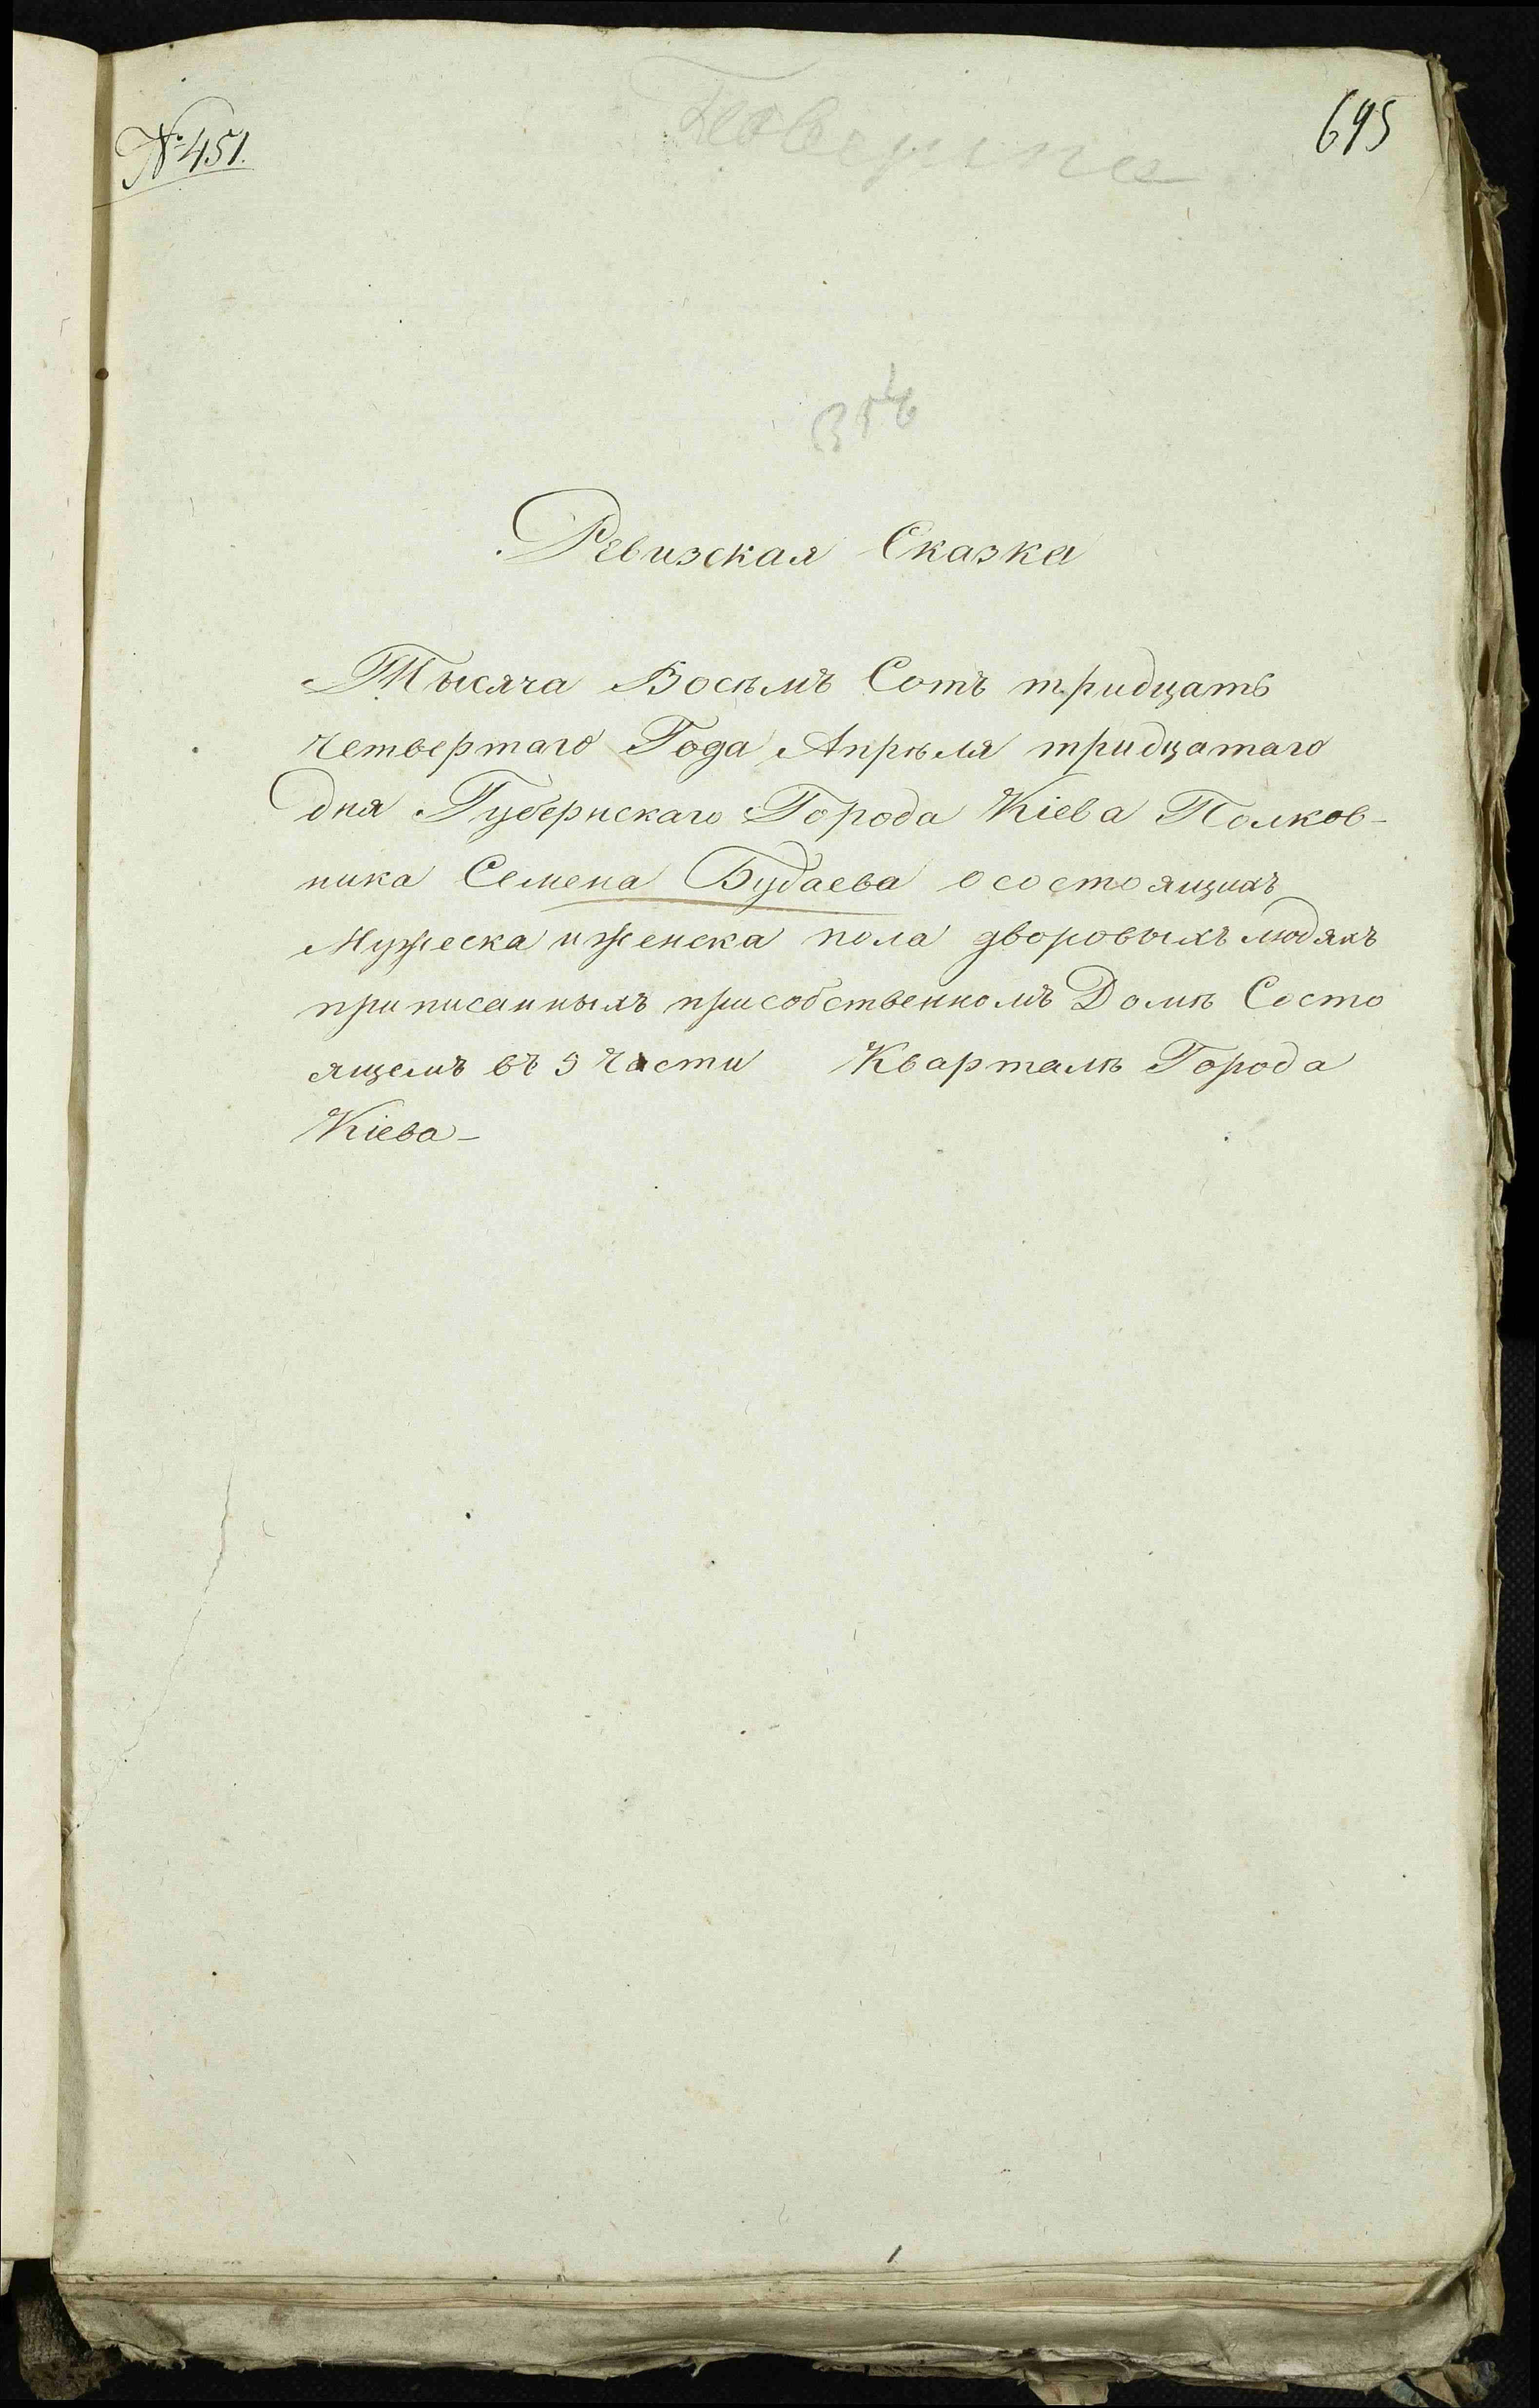 № 451.
695
Ревизская Сказка
Тысяча Восѣмъ Сотъ тридцать
четвертаго Года Апрѣля тридцатаго
дня Губернскаго Города Кіева Полков-
ника Семена Будаева о состоящихъ
Мужеска и женска пола дворовыхъ людяхъ
приписанныхъ при собственномъ Домѣ Состо
ящемъ въ 5 Части Кварталѣ Города
Кіева-
1